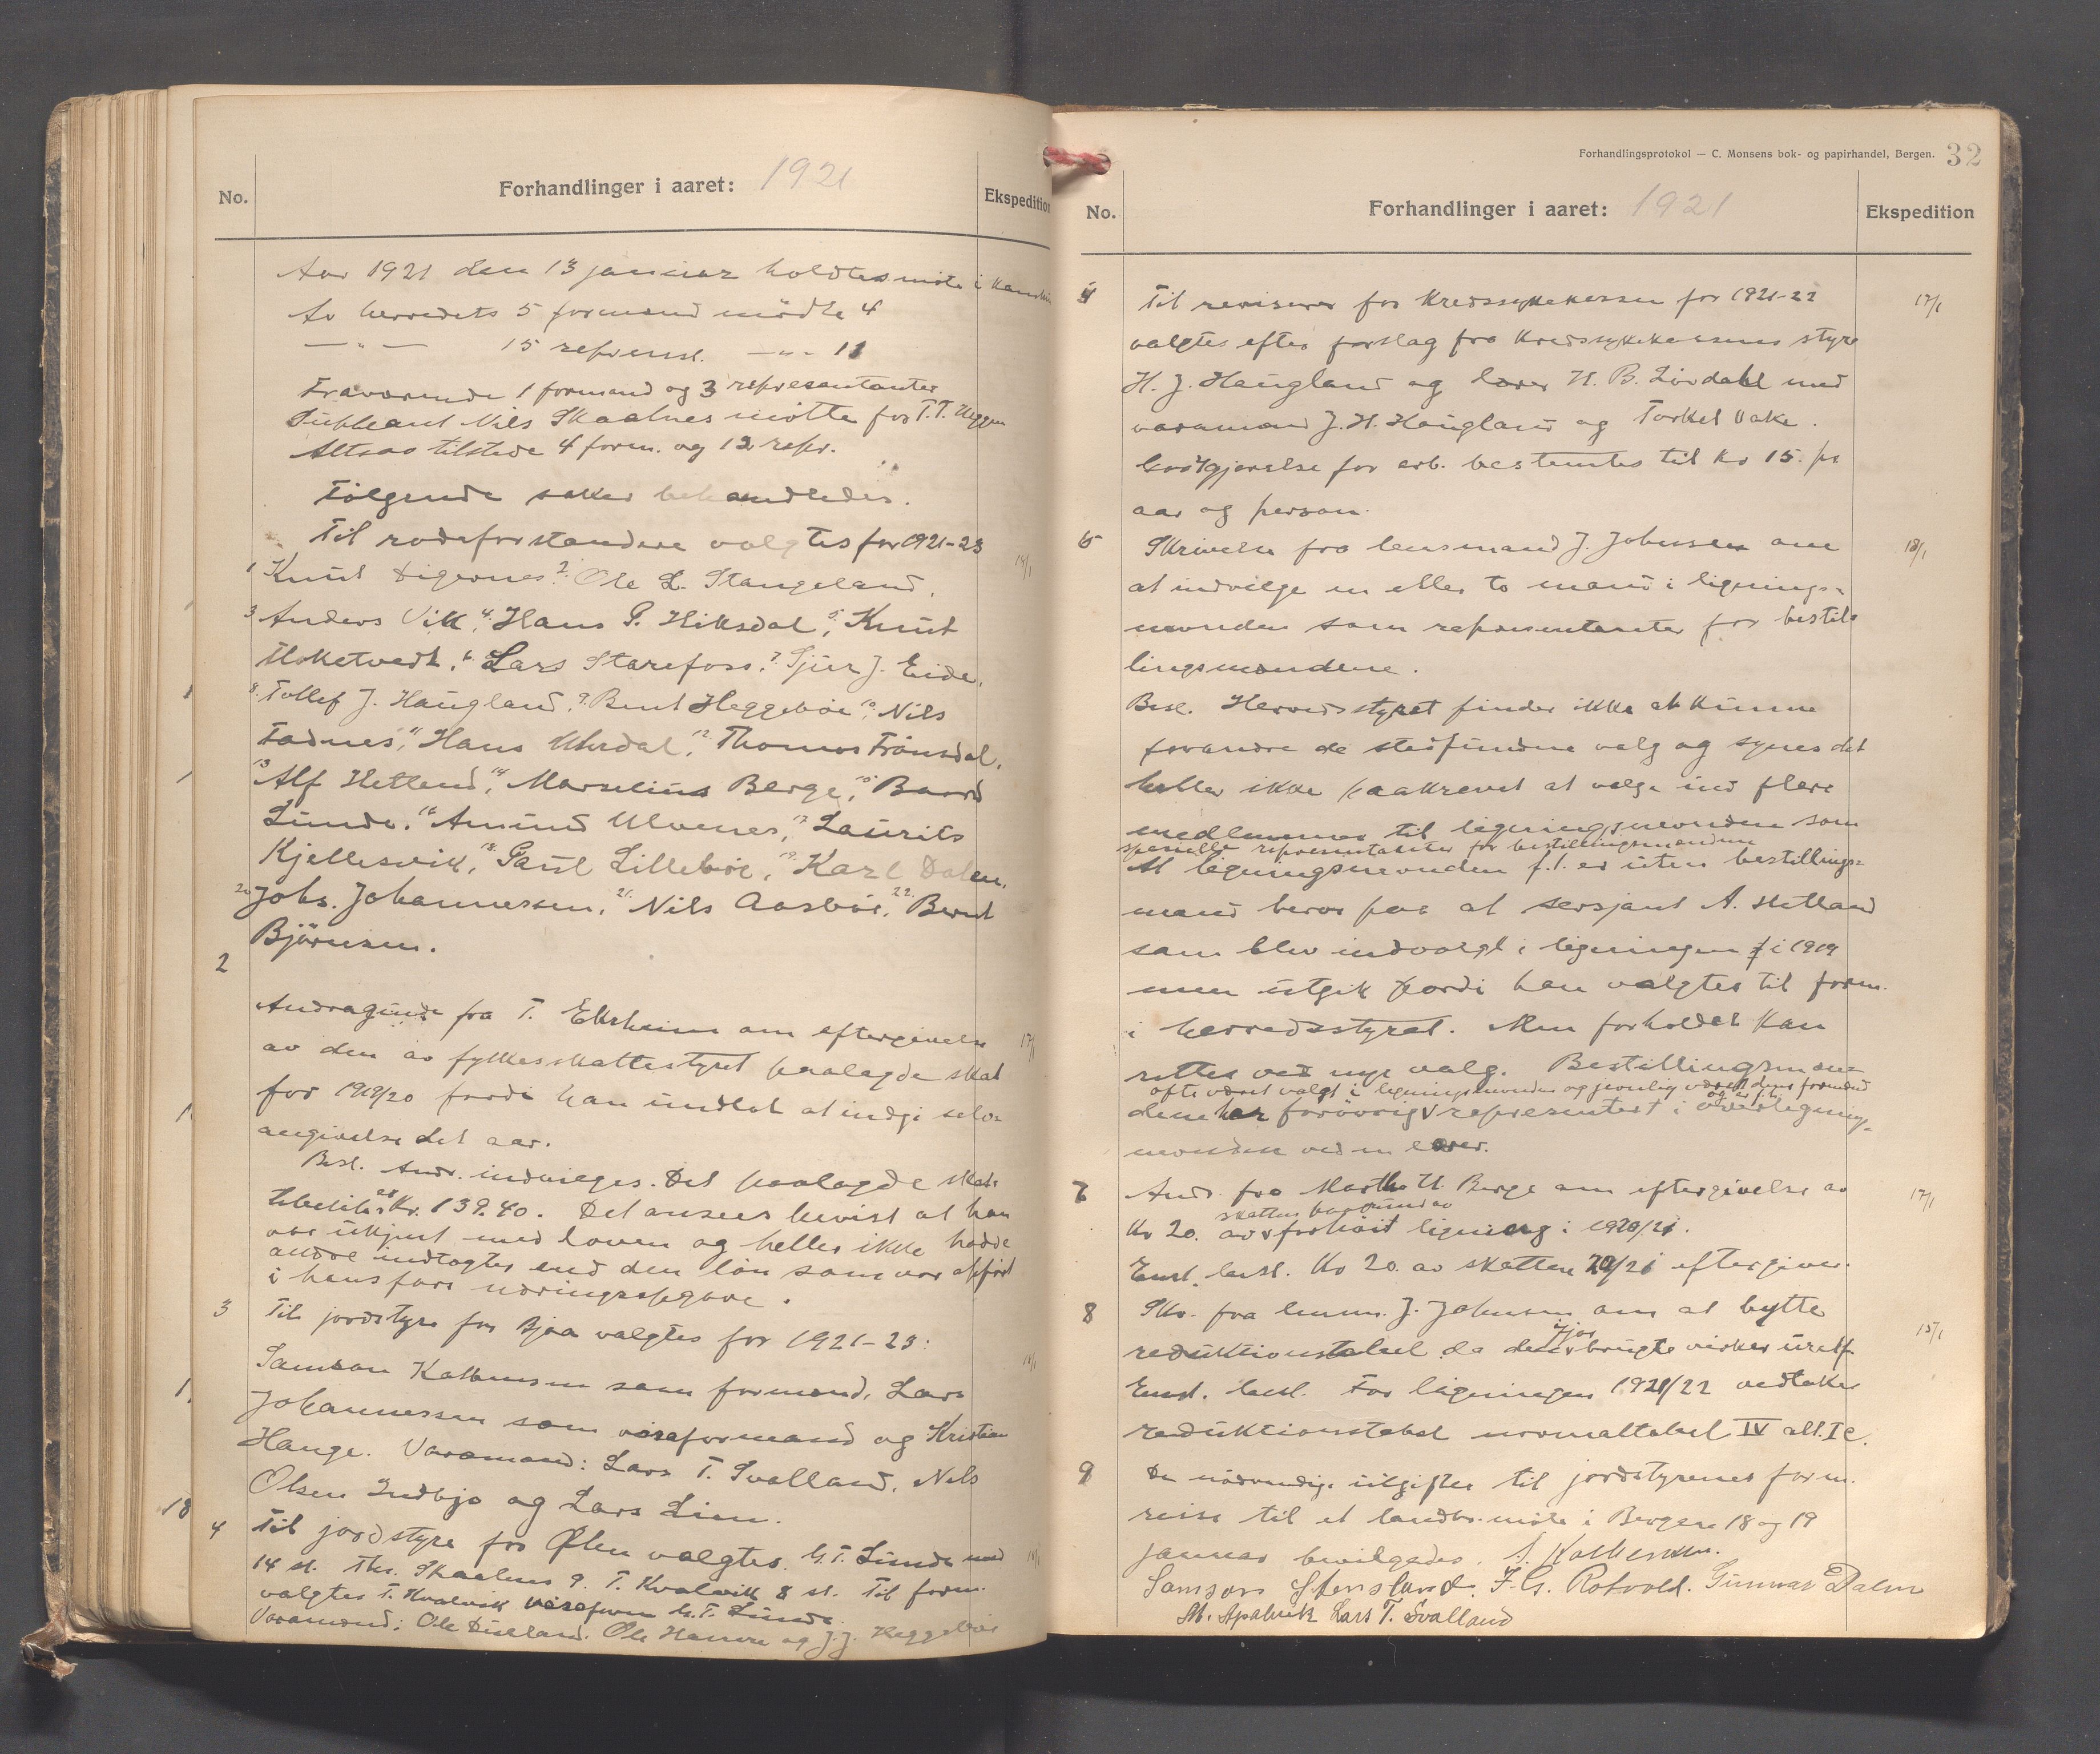 No.
Forhandlinger i aaret: 1921
Ekspedition
Aar 1921 den 13 januar holdtes møte i
Av herredets 5 formænd mødte 4
— " — 15 repræsent. — " — 11
Fraværende 1 formand og 3 repræsentanter
Supleant Nils Skaalnes møtte for T. T. Heggen
Altsaa tilstede 4 form. og 12 repr.
Følgende saker behandledes.
Til rodeforstandere valgtes for 1921-23
14/1
1 Knut Digernes, 2. Ole L. Stangeland,
3 Anders Vik, 4. Hans P. Hiksdal, 5. Knut
Floketvedt, 6 Lars Starefoss, 7. Sjur J. Eide,
8. Tollef J. Haugland, 9. Bent Heggebøe, 10. Nils
Fadnes, 11 Hans Uhrdal, 12 Thomas Frønsdal,
13 Alf Hetland, 14 Marselius Berge, 15. Baard
Lunde, 16 Amund Ulvenes, 17 Laurits
Kjellesvik, 18. Paul Lillebøe, 19. Karl Dalen,
20 Johs. Johannessen, 21. Nils Aasbøe, 22. Bernt
Bjørnsen.
2
Andragende fra T. Ekrheim om eftergivelse
17/1
av den av fylkesskattestyret paalagde skat
for 1919/20 fordi han undlot at indgi selv=
angivelse det aar.
Besl. Andr. indvilges. Det paalagde skatte
er Kr. 139.40. Det ansees bevist at han
var ukjent med loven og heller ikke hadde
andre indtægter end den løn som var opført
i hans fars næringsopgave.
3 Til jordstyre for Bjoa valgtes for 1921-23:
Samson Kalhensen som formand, Lars
Johannessen som viseformand og Kristian
Hauge. Varamænd: Lars T. Svalland, Nils
Olsen Indbjo og Lars Lien.
4 Til jordstyre for Ølen valgtes. G. T. Lunde med
14 st. Ths. Skaalnes 9. T. Kvalvik 8 st. Til form.
valgtes T. Kvalvik viseform G. T. Lunde.
Varamænd: Ole Dueland. Ole Hamre og J. J. Heggebøe
Forhandlingsprotokol — C. Monsens bok- og papirhandel, Bergen.
32
No.
Forhandlinger i aaret: 1921
Ekspedition
Til revisorer for Kredssykekassen for 1921-22
17/1
valgtes efter forslag fra Kredssykekassens styre
H. J. Haugland og lærer H. B. Løvdahl med
varamænd J. H. Haugland og Torkel Vake.
Godtgjørelse for arb. bestemtes til Kr 15. pr
aar og person.
Skrivelse fra lensmand J. Johnsen om
18/1
at indvælge en eller to mænd i lignings=
nevnden som repræsentanter for bestil=
lingsmændene.
Besl. Herredsstyret finder ikke at kunne
forandre de stedfundne valg og synes det
heller ikke paakrævet at vælge ind flere
medlemmer til ligningsnevnden som
spesielle repræsentanter for bestillingsmændene
At ligningsnevnden f.t. er uten bestillings=
mand beror paa at sersjant A. Hetland
som blev indvalgt i ligningen i 1919
men utgik fordi han valgtes til form.
i herredsstyret. Men forholdet kan
rettes ved nye valg. Bestillingsmæn=
ofte været valgt i ligningsnevnden og jevnlig været dens formand
og er f.t.
dene har forøvrig repræsentert i overlignings=
nevnden ved en lærer.
7 Andr. fra Martha H. Berge om eftergivelse av
17/1
skatten paa grund av
Kr 20. av forhøiet ligning i 1920/21.
Enst. besl. Kr 20. av skatten 20/21 eftergives.
8 Skr. fra lensm. J. Johnsen om at bytte
15/1
ifjor
reduktionstabel da den brugte virker uretf.
Enst. besl. For ligningen 1921/22 vedtakes
reduktionstabel normaltabel IV alt. I c.
9 De nødvendige utgifter til jordstyrenes form.
reise til et landbr. møte i Bergen 18 og 19
januar bevilgedes. S. Kalhensen.
Samson Stensland. F. G. Rotvold. Gunnar Dalen
M. Apalvik Lars T. Svalland